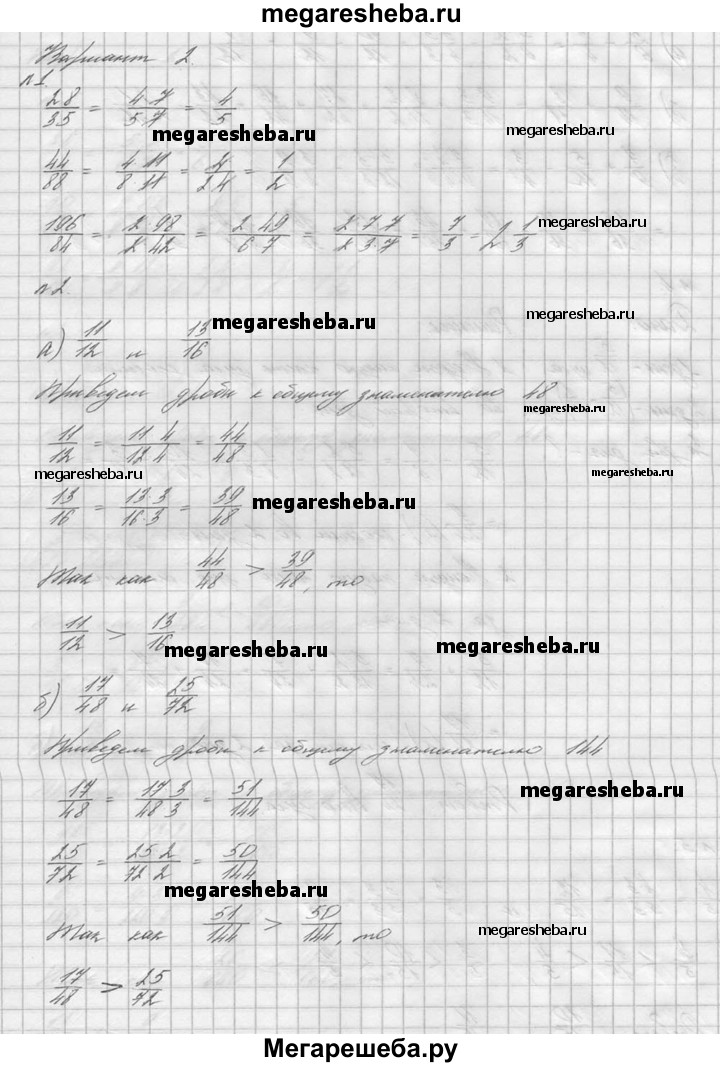 megaresheba.ru
Вариант 2.
№1.
28/35 = 4·7/5·7 = 4/5
megaresheba.ru megaresheba.ru
44/88 = 4·11/8·11 = 4/2·4 = 1/2
196/84 = 2·98/2·42 = 2·49/6·7 = 2·7·7/2·3·7 = 7/3 = 2 1/3 megaresheba.ru
№2.
а) 11/12 и 13/16 megaresheba.ru megaresheba.ru
Приведем дроби к общему знаменателю 48
megaresheba.ru
11/12 = 11·4/12·4 = 44/48
megaresheba.ru megaresheba.ru
13/16 = 13·3/16·3 = 39/48 megaresheba.ru
Так как 44/48 > 39/48, то
11/12 > 13/16
megaresheba.ru megaresheba.ru
б) 17/48 и 25/72
Приведем дроби к общему знаменателю 144
17/48 = 17·3/48·3 = 51/144 megaresheba.ru
25/72 = 25·2/72·2 = 50/144
megaresheba.ru
Так как 51/144 > 50/144, то megaresheba.ru
17/48 > 25/72
Мегарешеба.ру